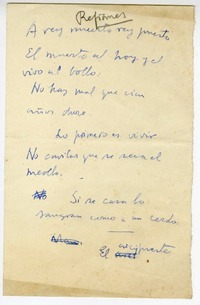 Refranes
A rey muerto rey puesto
El muerto al hoyo y el
vivo al bollo.
No hay mal que cien
años dure.
Lo primero es vivir
No comitas que se seca el
meollo.
Si se casa lo
sangran como a un cerdo
El arcipreste